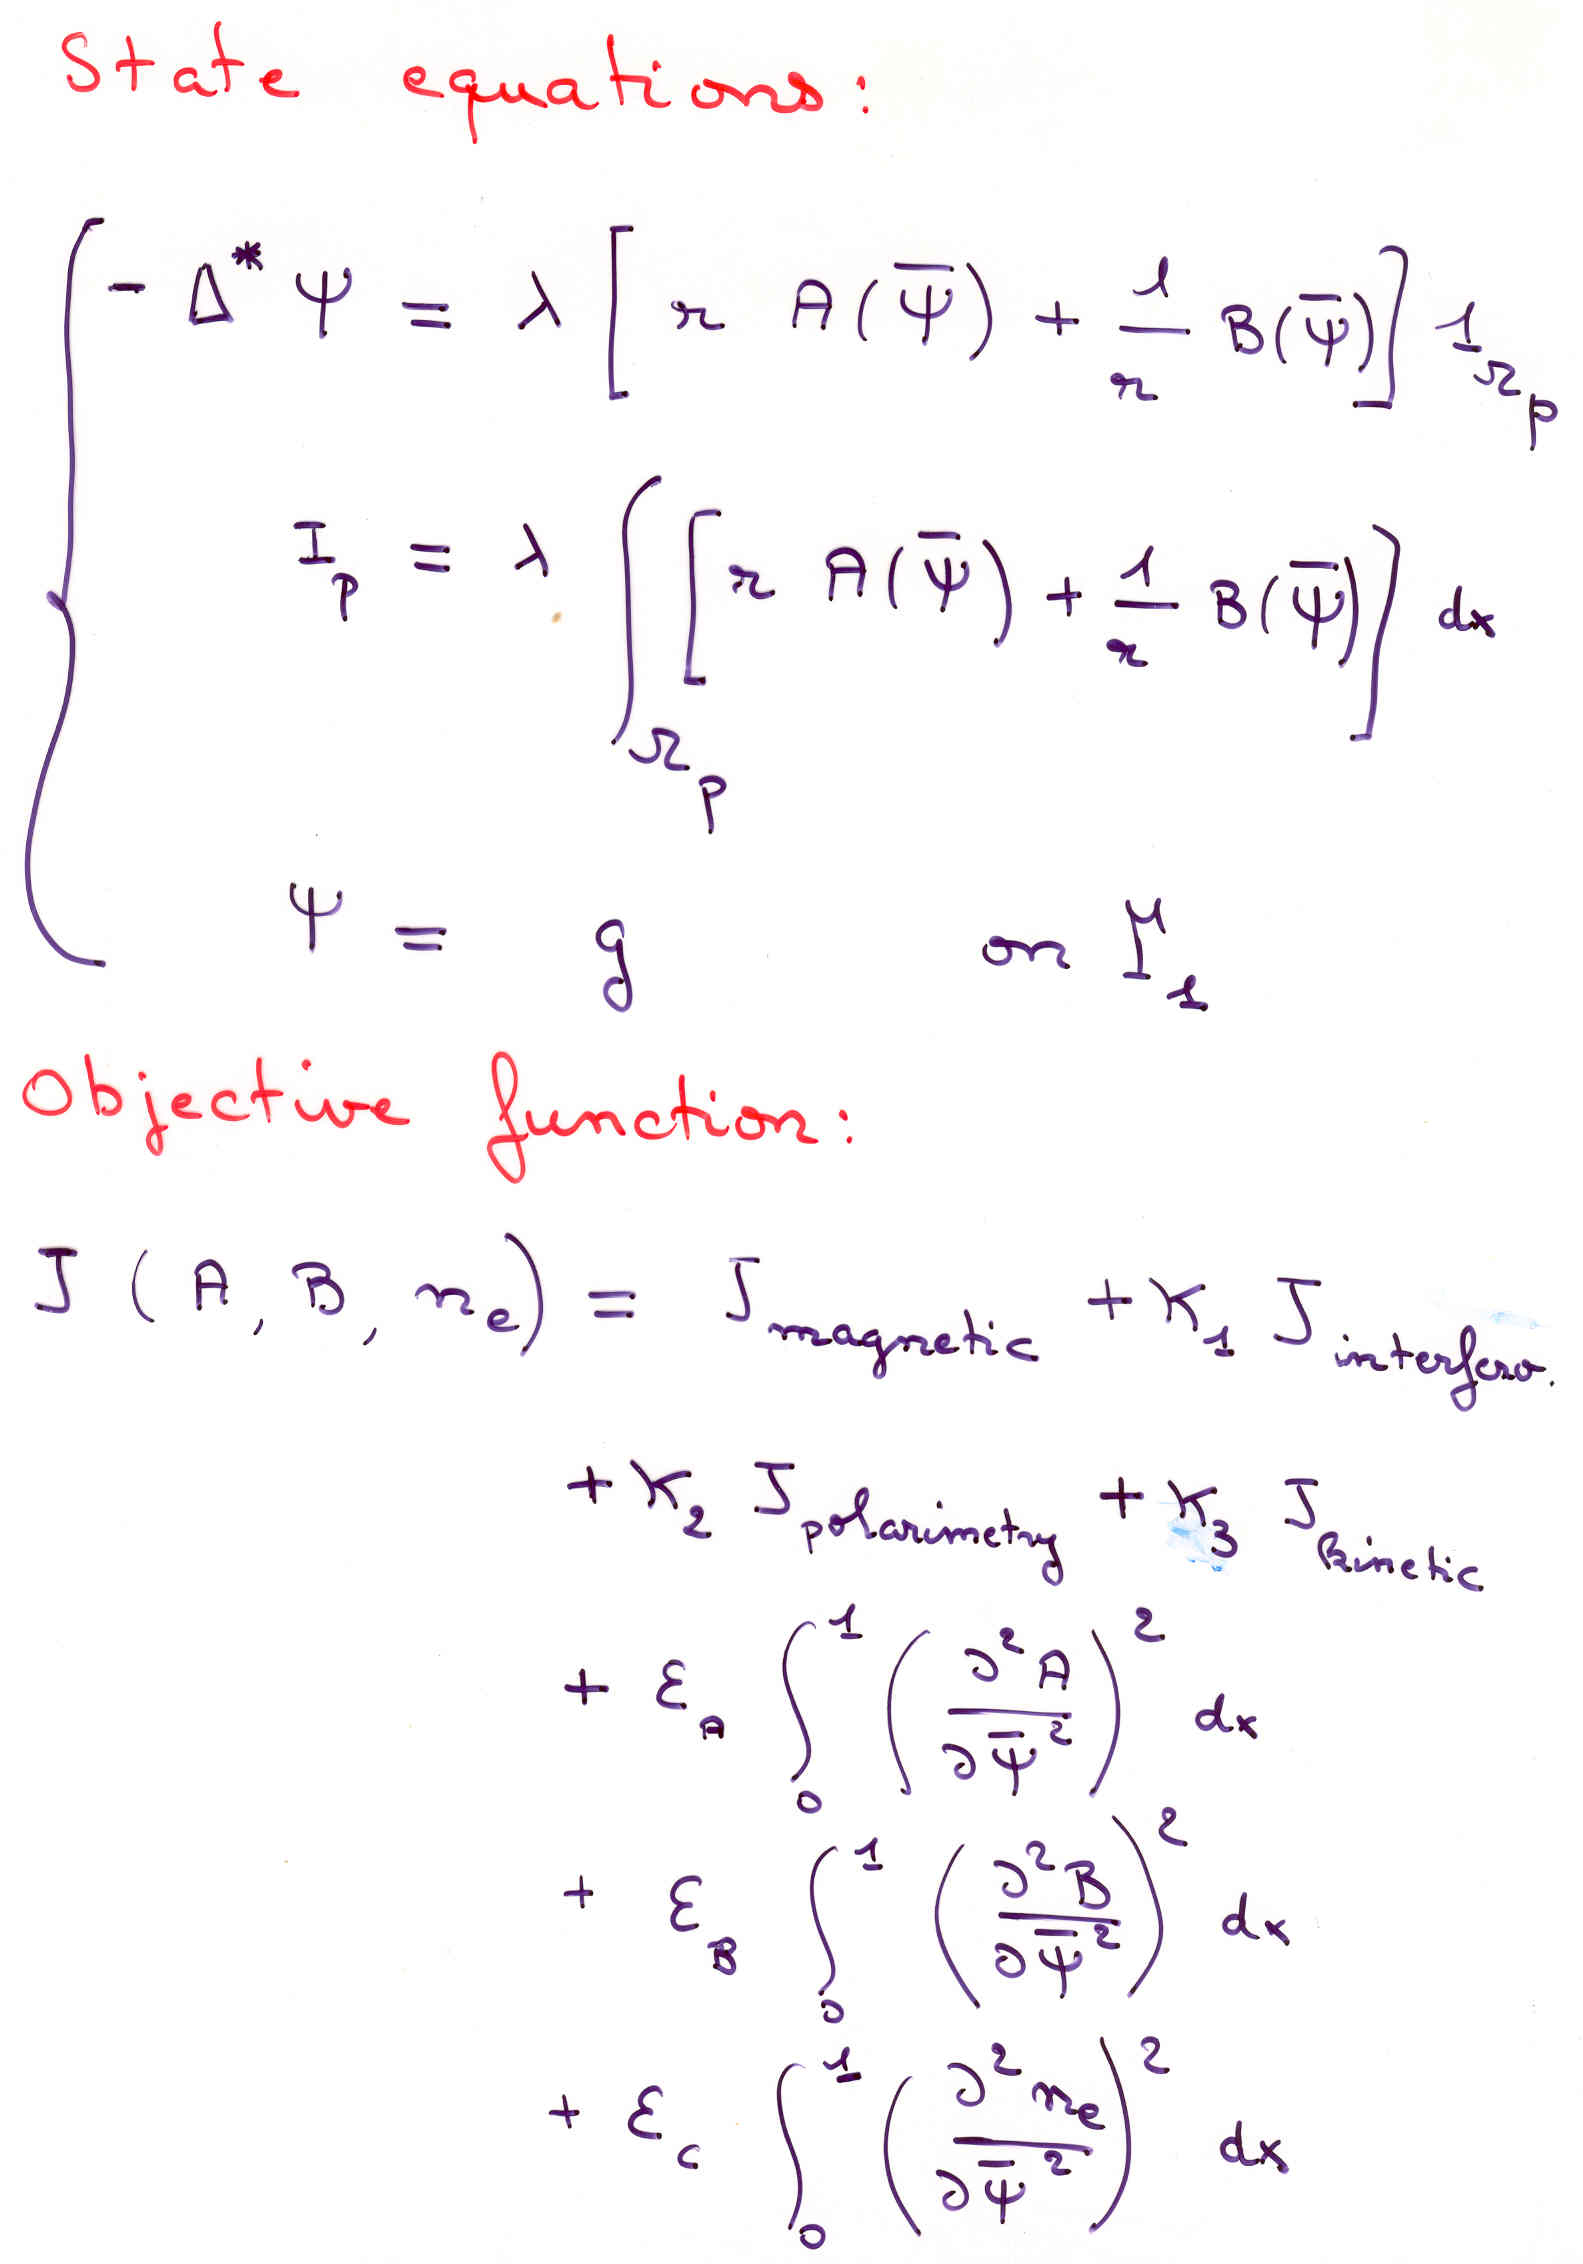 State equations:
- Δ* Ψ = λ [ r A(Ψ̄) + 1/r B(Ψ̄) ] 1_Ω_p
I_p = λ ∫_Ω_p [ r A(Ψ̄) + 1/r B(Ψ̄) ] dx
Ψ = g on Γ_1
Objective function:
J ( A, B, n_e ) = J_magnetic + K_1 J_interfero.
+ K_2 J_polarimetry + K_3 J_kinetic
+ ε_A ∫_0^1 ( ∂²A / ∂Ψ̄² )² dx
+ ε_B ∫_0^1 ( ∂²B / ∂Ψ̄² )² dx
+ ε_c ∫_0^1 ( ∂²n_e / ∂Ψ̄² )² dx